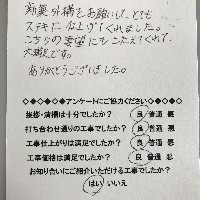 新築外構をお願いして、とても
ステキに仕上げてくれました。
こちらの要望にもこたえてくれて、
大満足です。
ありがとうございました。
◇◆◇◆◇◆アンケートにご協力ください◇◆◇◆◇◆
挨拶・清掃は十分でしたか? 良 普通 悪
打ち合わせ通りの工事でしたか? 良 普通 悪
工事仕上がりは満足でしたか? 良 普通 悪
工事価格は満足でしたか? 良 普通 悪
お知り合いにご紹介いただける工事でしたか?
はい いいえ